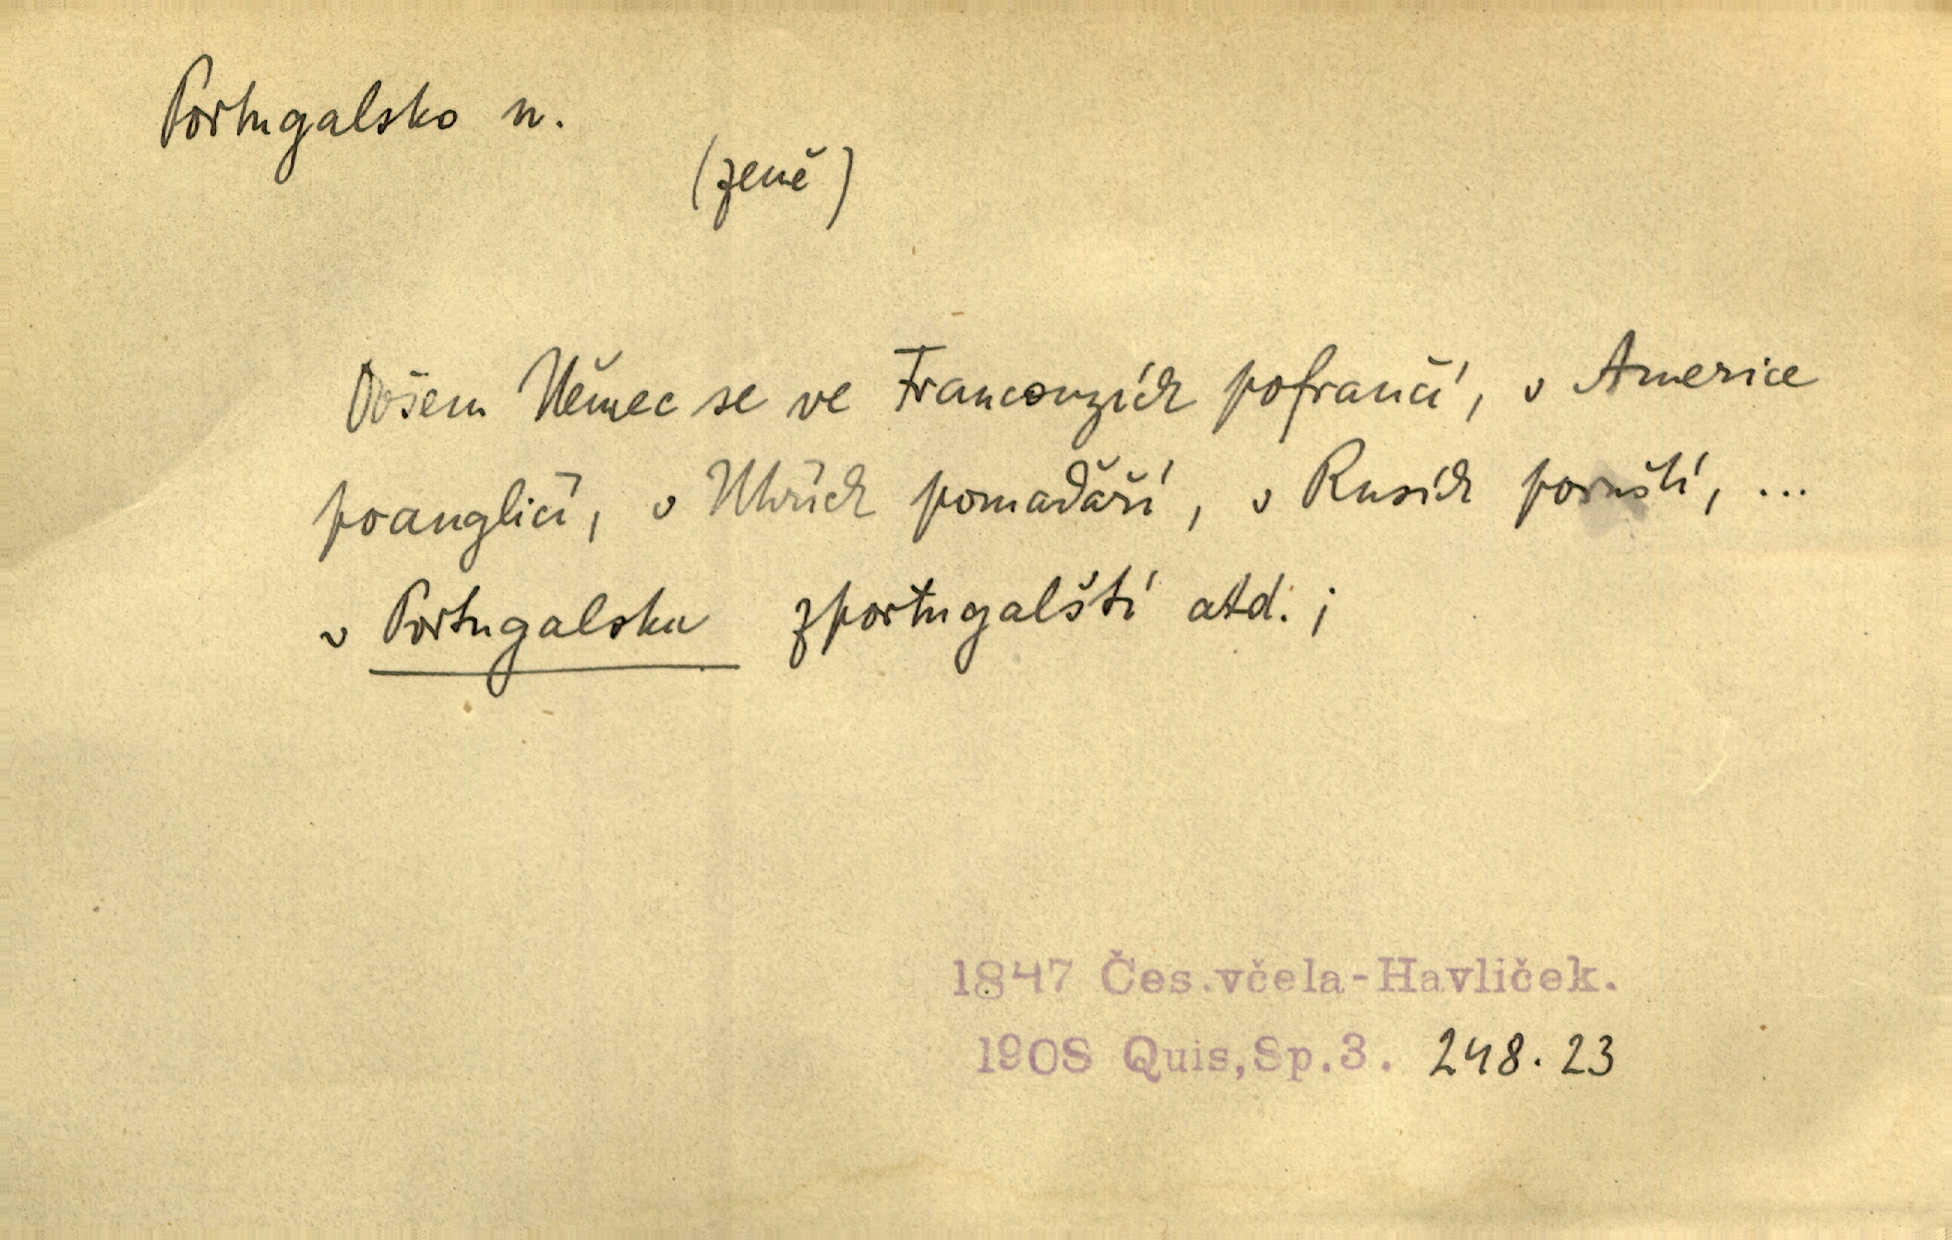 Portugalsko n.
(země)
Ovšem Němec se ve Francouzích pofrančí, v Americe
poangličí, v Uhřích pomaďaří, v Rusích poruští, ...
v Portugalsku zportugalští atd. ;
1847 Čes.včela-Havlíček.
1908 Quis,Sp.3. 248.23